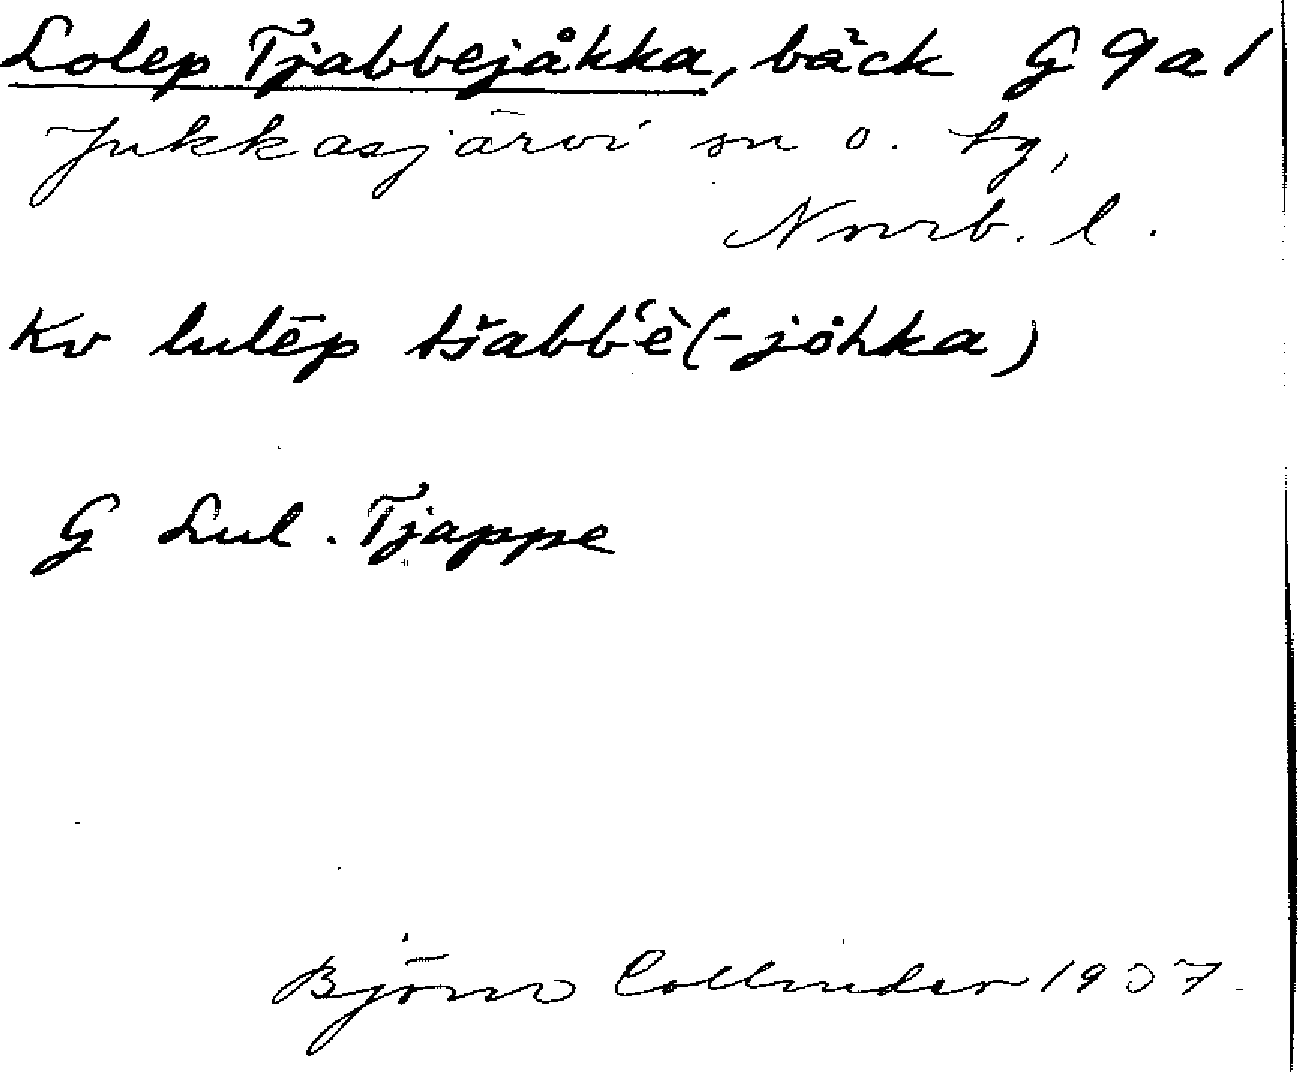 Lolep Tjabbejåkka, bäck G 9 a 1
Jukkasjärvi sn o. tg,
Norrb. l.
Kv lulēp tšabb'è(-jåhka)
G Lul. Tjappe
Björn Collinder 1937